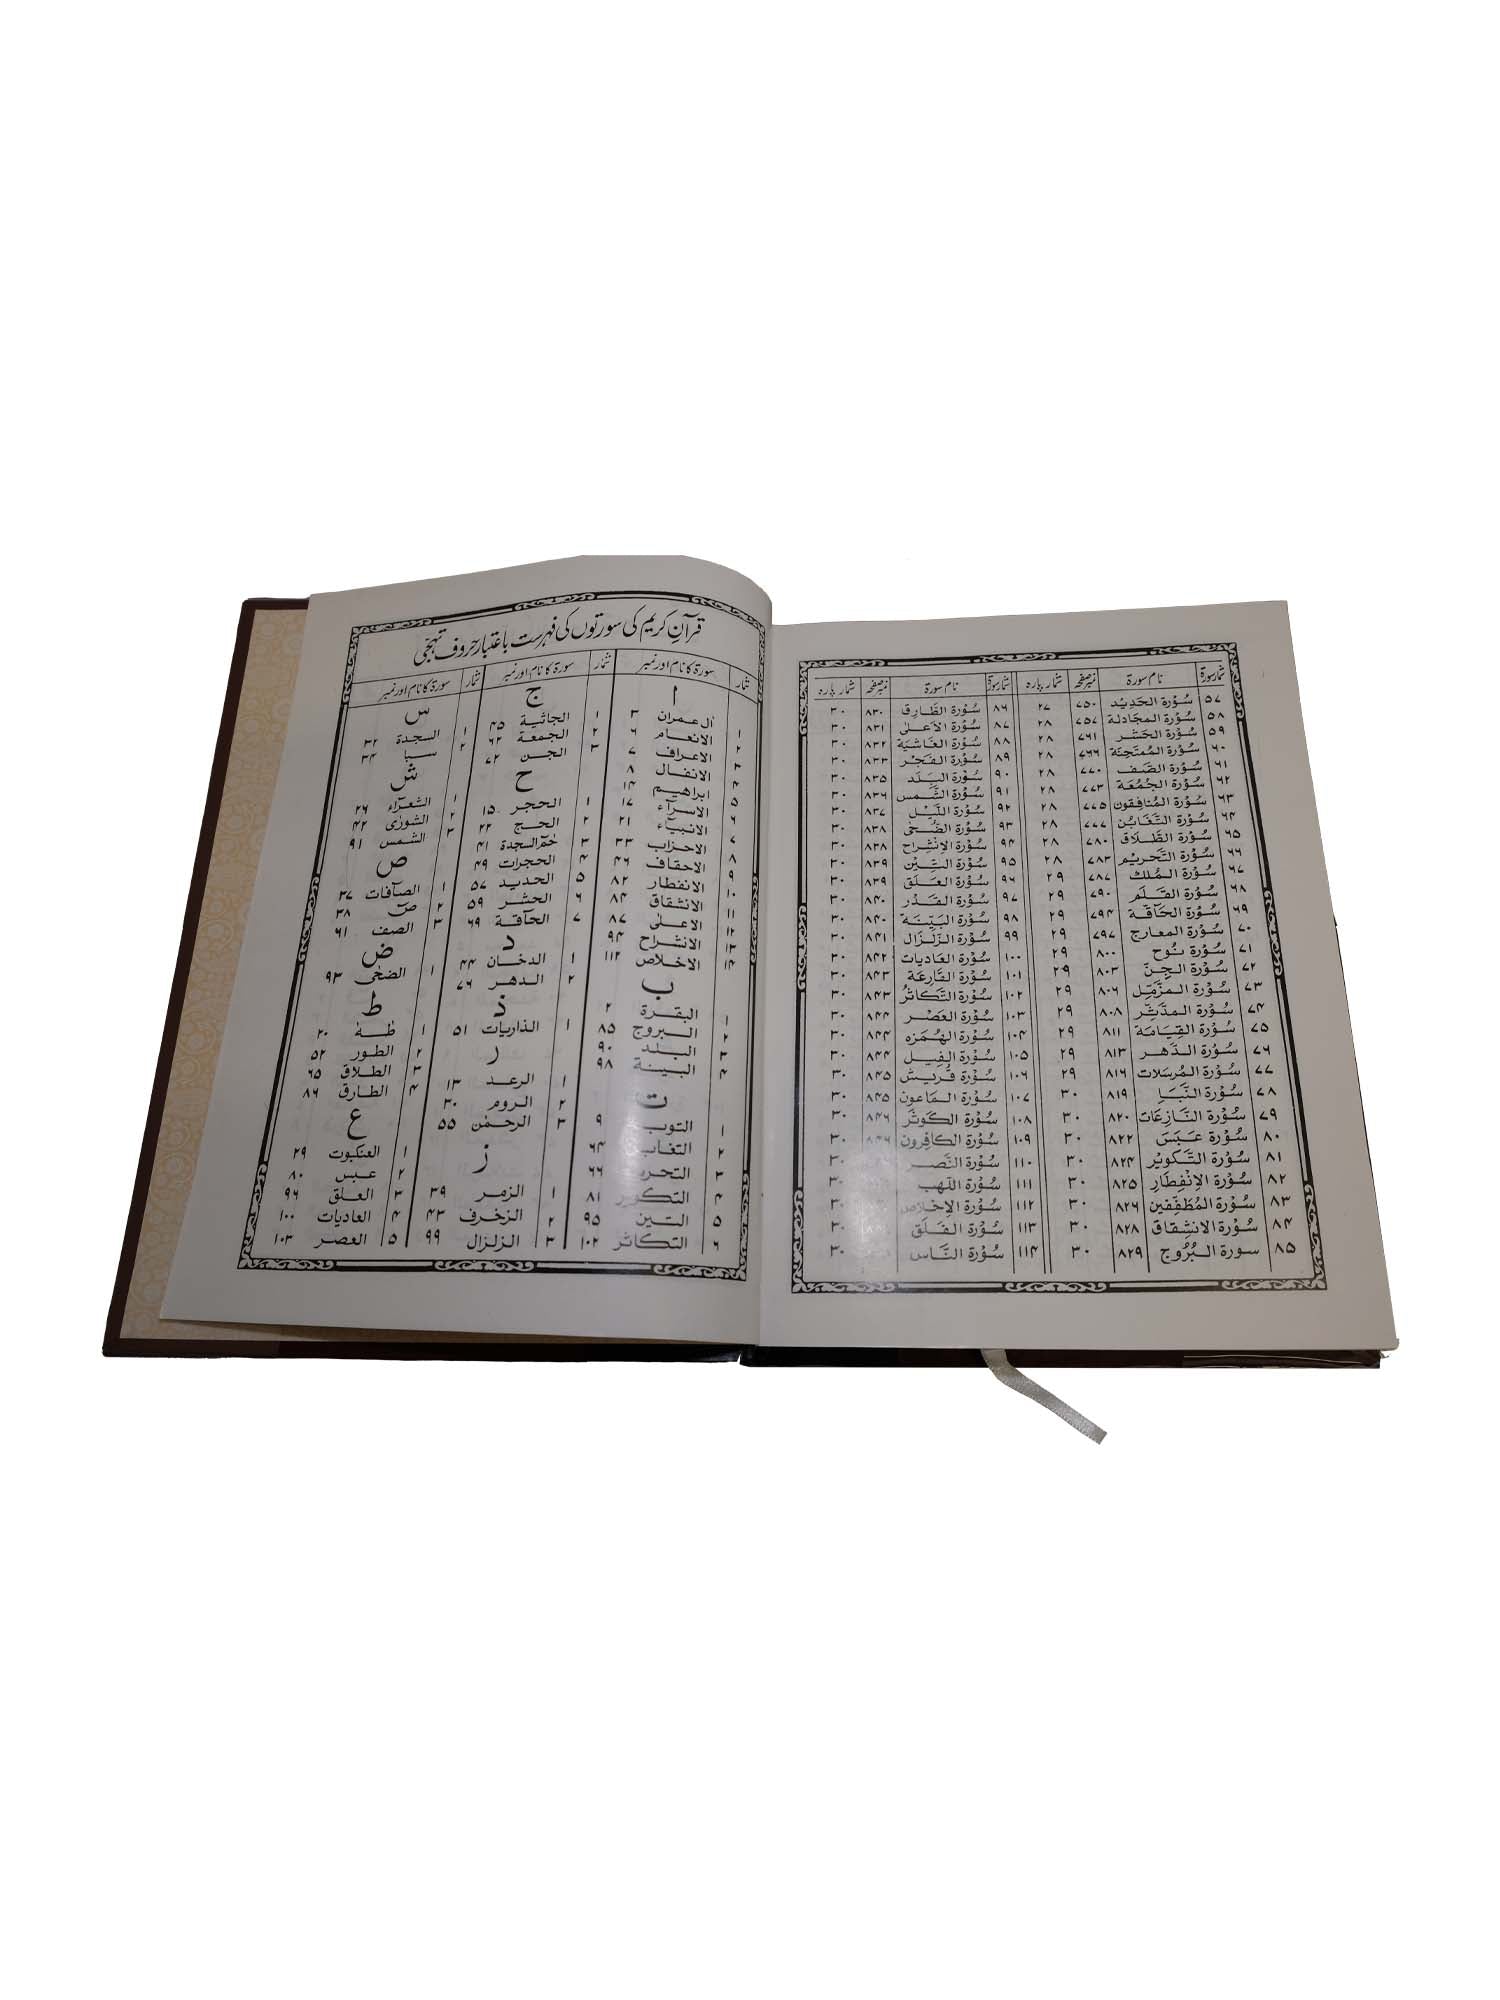 شمار سورۃ نام سورۃ نمبر صفحہ شمار پارہ شمار سورۃ نام سورۃ نمبر صفحہ شمار پارہ
۵۷ سُوْرۃ الحَدِیْد ۷۵۰ ۲۷ ۸۶ سُوْرۃ الطَّارِق ۸۳۰ ۳۰
۵۸ سُوْرۃ المجَادلة ۷۵۷ ۲۸ ۸۷ سُوْرۃ الاَعلٰی ۸۳۱ ۳۰
۵۹ سُوْرۃ الحَشر ۷۶۱ ۲۸ ۸۸ سُوْرۃ الغَاشیَة ۸۳۲ ۳۰
۶۰ سُوْرۃ المُمتَحِنَة ۷۶۶ ۲۸ ۸۹ سُوْرۃ الفَجْر ۸۳۳ ۳۰
۶۱ سُوْرۃ الصَّف ۷۷۰ ۲۸ ۹۰ سُوْرۃ البَلَد ۸۳۵ ۳۰
۶۲ سُوْرۃ الجُمُعَة ۷۷۳ ۲۸ ۹۱ سُوْرۃ الشَّمس ۸۳۶ ۳۰
۶۳ سُوْرۃ المُنافِقون ۷۷۵ ۲۸ ۹۲ سُوْرۃ اللَّیْل ۸۳۷ ۳۰
۶۴ سُوْرۃ التَّغَابُن ۷۷۷ ۲۸ ۹۳ سُوْرۃ الضُّحٰی ۸۳۸ ۳۰
۶۵ سُوْرۃ الطَّلَاق ۷۸۰ ۲۸ ۹۴ سُوْرۃ الاِنْشِراح ۸۳۸ ۳۰
۶۶ سُوْرۃ التَّحریم ۷۸۳ ۲۸ ۹۵ سُوْرۃ التِّین ۸۳۹ ۳۰
۶۷ سُوْرۃ المُلك ۷۸۷ ۲۹ ۹۶ سُوْرۃ العَلَق ۸۳۹ ۳۰
۶۸ سُوْرۃ القَلَم ۷۹۰ ۲۹ ۹۷ سُوْرۃ القَدْر ۸۴۰ ۳۰
۶۹ سُوْرۃ الحَآقَّة ۷۹۴ ۲۹ ۹۸ سُوْرۃ البَیِّنَة ۸۴۰ ۳۰
۷۰ سُوْرۃ المعارج ۷۹۷ ۲۹ ۹۹ سُوْرۃ الزِّلزَال ۸۴۱ ۳۰
۷۱ سُوْرۃ نُوح ۸۰۰ ۲۹ ۱۰۰ سُوْرۃ العادیات ۸۴۲ ۳۰
۷۲ سُوْرۃ الجِنّ ۸۰۳ ۲۹ ۱۰۱ سُوْرۃ القَارِعَة ۸۴۳ ۳۰
۷۳ سُوْرۃ المزَّمِّل ۸۰۶ ۲۹ ۱۰۲ سُوْرۃ التَّكَاثُر ۸۴۳ ۳۰
۷۴ سُوْرۃ المدَّثِّر ۸۰۸ ۲۹ ۱۰۳ سُوْرۃ العَصْر ۸۴۴ ۳۰
۷۵ سُوْرۃ القِیَامَة ۸۱۱ ۲۹ ۱۰۴ سُوْرۃ الهُمَزہ ۸۴۴ ۳۰
۷۶ سُوْرۃ الدَّهر ۸۱۳ ۲۹ ۱۰۵ سُوْرۃ الفِیل ۸۴۴ ۳۰
۷۷ سُوْرۃ المُرسَلات ۸۱۶ ۲۹ ۱۰۶ سُوْرۃ قُریش ۸۴۵ ۳۰
۷۸ سُوْرۃ النَّبَا ۸۱۹ ۳۰ ۱۰۷ سُوْرۃ المَاعون ۸۴۵ ۳۰
۷۹ سُوْرۃ النَّازِعَات ۸۲۰ ۳۰ ۱۰۸ سُوْرۃ الکَوثَر ۸۴۶ ۳۰
۸۰ سُوْرۃ عَبَسَ ۸۲۲ ۳۰ ۱۰۹ سُوْرۃ الکافِرون ۸۴۶ ۳۰
۸۱ سُوْرۃ التَّكوِیْر ۸۲۴ ۳۰ ۱۱۰ سُوْرۃ النَّصر ۳۰
۸۲ سُوْرۃ الاِنْفِطَار ۸۲۵ ۳۰ ۱۱۱ سُوْرۃ اللهب ۳۰
۸۳ سُوْرۃ المُطَفِّفین ۸۲۶ ۳۰ ۱۱۲ سُوْرۃ الاِخْلاص ۳۰
۸۴ سُوْرۃ الانشِقاق ۸۲۸ ۳۰ ۱۱۳ سُوْرۃ الفَلَق ۳۰
۸۵ سورۃ البُرُوج ۸۲۹ ۳۰ ۱۱۴ سُوْرۃ النَّاس ۳۰
قرآنِ کریم کی سورتوں کی فہرست باعتبارِ حروفِ تہجّی
شمار سورۃ کا نام اور نمبر
ا
۱ اٰل عمران ۳
۲ الانعام ۶
۳ الاعراف ۷
۴ الانفال ۸
۵ ابراهیم ۱۴
۶ الاسرآء ۱۷
۷ الانبیآء ۲۱
۸ الاحزاب ۳۳
۹ الاحقاف ۴۶
۱۰ الانفطار ۸۲
۱۱ الانشقاق ۸۴
۱۲ الاعلٰی ۸۷
۱۳ الانشراح ۹۴
۱۴ الاخلاص ۱۱۲
ب
۱ البقرۃ ۲
۲ البروج ۸۵
۳ البلد ۹۰
۴ البینة ۹۸
ت
۱ التوب ۹
۲ التغاب ۶۴
۳ التحر ۶۶
۴ التكویر ۸۱
۵ التین ۹۵
۶ التكاثر ۱۰۲
شمار سورۃ کا نام اور نمبر
ج
۱ الجاثیة ۴۵
۲ الجمعة ۶۲
۳ الجن ۷۲
ح
۱ الحجر ۱۵
۲ الحج ۲۲
۳ حٰمٓ السجدۃ ۴۱
۴ الحجرات ۴۹
۵ الحدید ۵۷
۶ الحشر ۵۹
۷ الحآقة ۶۹
د
۱ الدخان ۴۴
۲ الدهر ۷۶
ذ
۱ الذاریات ۵۱
ر
۱ الرعد ۱۳
۲ الروم ۳۰
۳ الرحمٰن ۵۵
ز
۱ الزمر ۳۹
۲ الزخرف ۴۳
۳ الزلزال ۹۹
شمار سورۃ کا نام اور نمبر
س
۱ السجدۃ ۳۲
۲ سبا ۳۴
ش
۱ الشعرآء ۲۶
۲ الشورٰی ۴۲
۳ الشمس ۹۱
ص
۱ الصآفات ۳۷
۲ صٓ ۳۸
۳ الصف ۶۱
ض
۱ الضحٰی ۹۳
ط
۱ طٰهٰ ۲۰
۲ الطور ۵۲
۳ الطلاق ۶۵
۴ الطارق ۸۶
ع
۱ العنکبوت ۲۹
۲ عبس ۸۰
۳ العلق ۹۶
۴ العادیات ۱۰۰
۵ العصر ۱۰۳